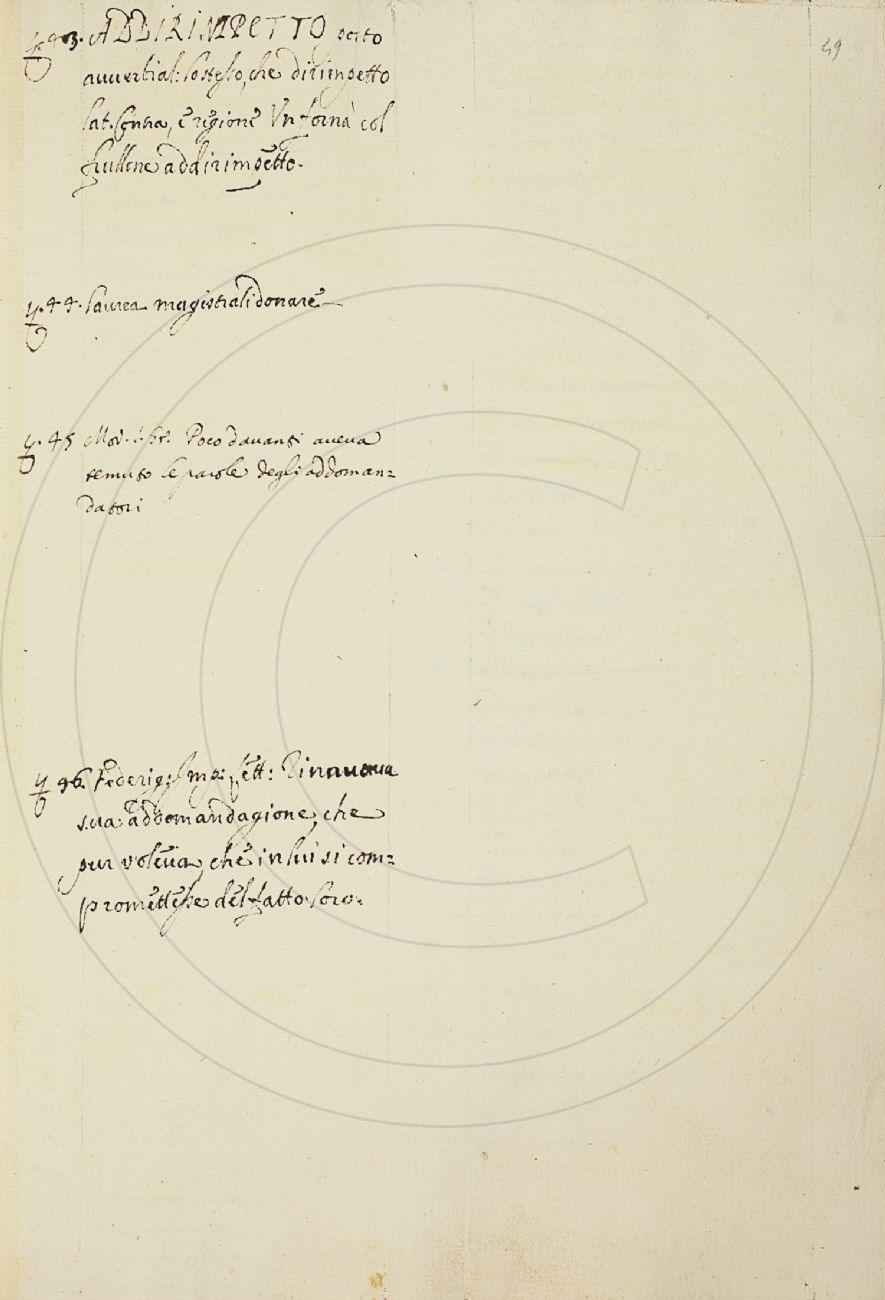 49
43. ADDIRIMPETTO posto
avverbial: lo stesso, che dirimpetto
lat. Contra, è regione Un forna col
frullone addirimpetto.
44. laurea magistrali donare
45 Mor. Poco davanti aveva
temuto le parole degli addoman=
datori
46. Federig: Imp: Rinnovava
sua addomandagione, che
pur voleva, che in lui si com=
promettesse del fatto loro.